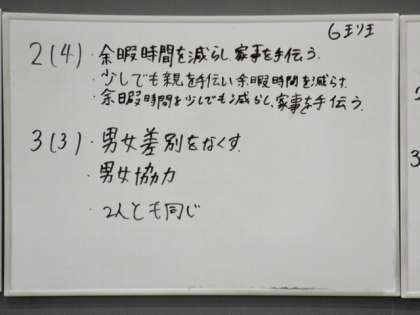 6班
2(4)・余暇時間を減らし、家事を手伝う。
・少しでも親を手伝い余暇時間を減らす。
・余暇時間を少しでも減らし、家事を手伝う。
3(3)・男女差別をなくす
・男女協力
・2人とも同じ